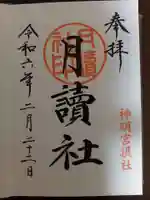 奉拝
神明宮摂社
月讀社
月讀社印
令和六年二月二十二日